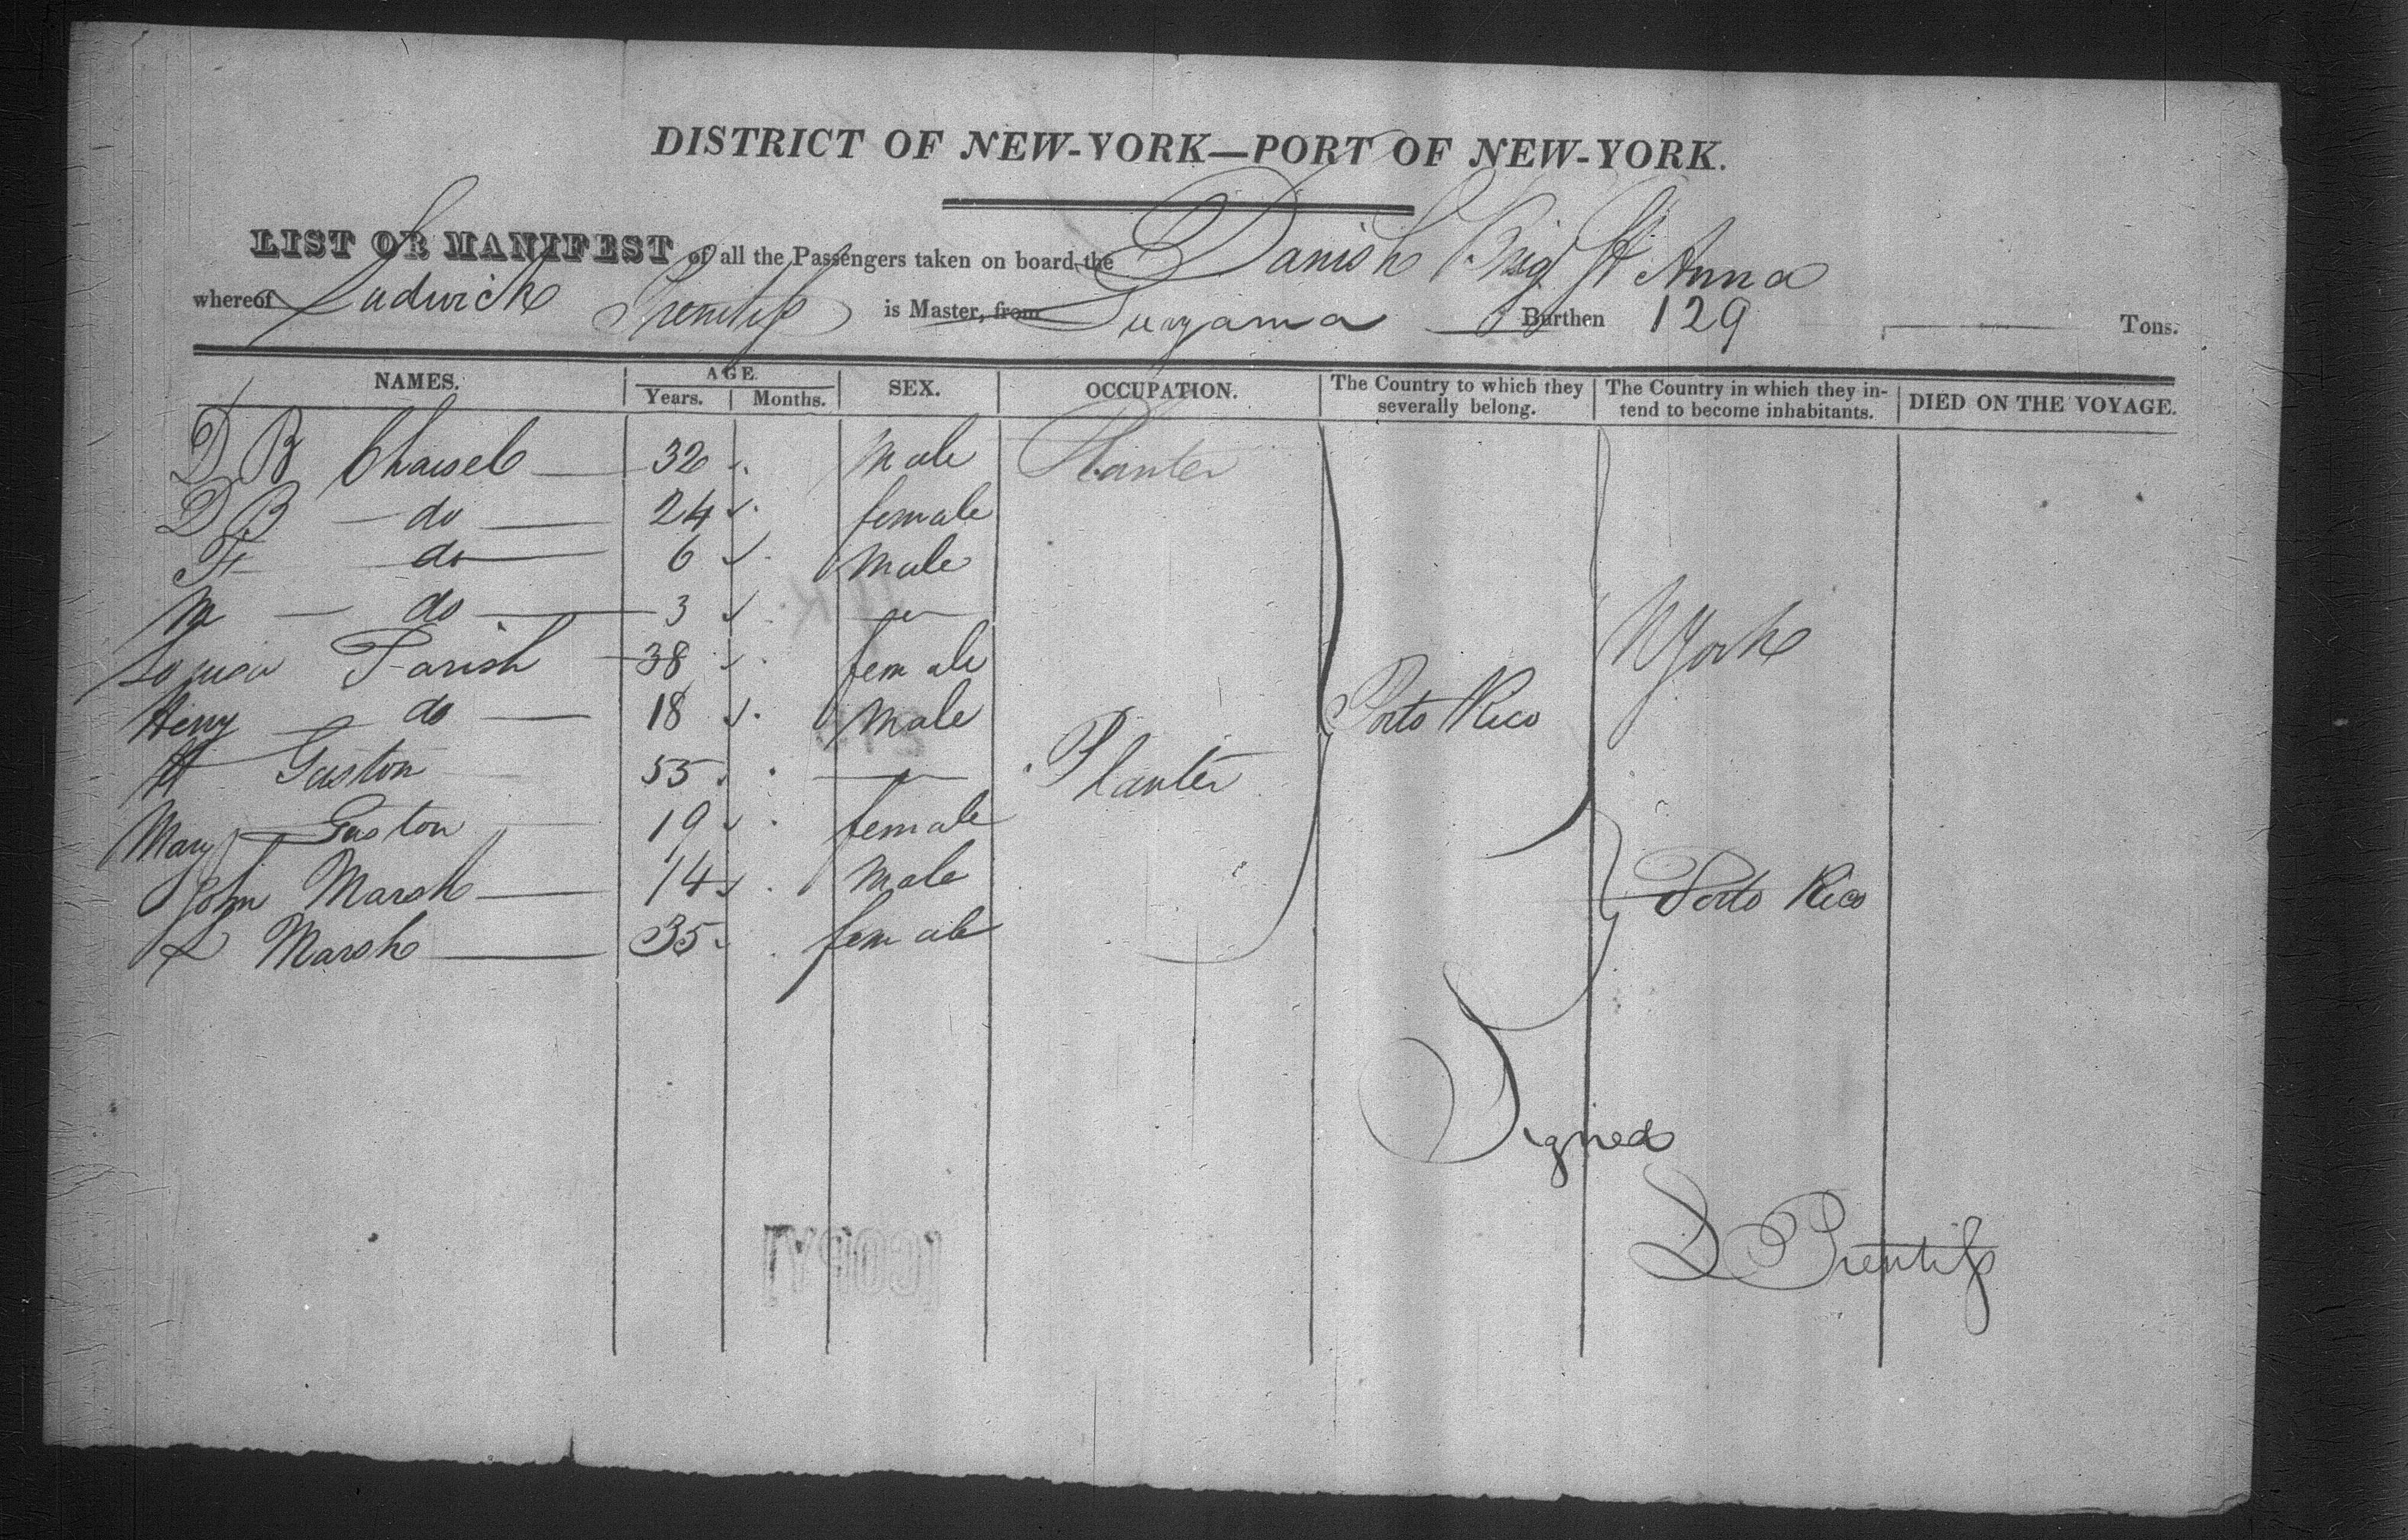 DISTRICT OF NEW-YORK—PORT OF NEW-YORK.
LIST OR MANIFEST of all the Passengers taken on board the Danish Brig St Anna
whereof Ludwick Prentiss is Master, from Guyama Burthen 129 Tons.
NAMES. AGE. Years. Months. SEX. OCCUPATION. The Country to which they severally belong. The Country in which they in-tend to become inhabitants. DIED ON THE VOYAGE.
D B 32 Male Planter
D B do 24 female
F do 6 Male
M do 3
Parish 38 female N York
Henry do 18 Male Porto Rico
Gaston 55 Planter
Mary Gaston 19 female
John Marsh 14 Male Porto Rico
L Marsh 35 female
Signed
L Prentiss
[COPY]